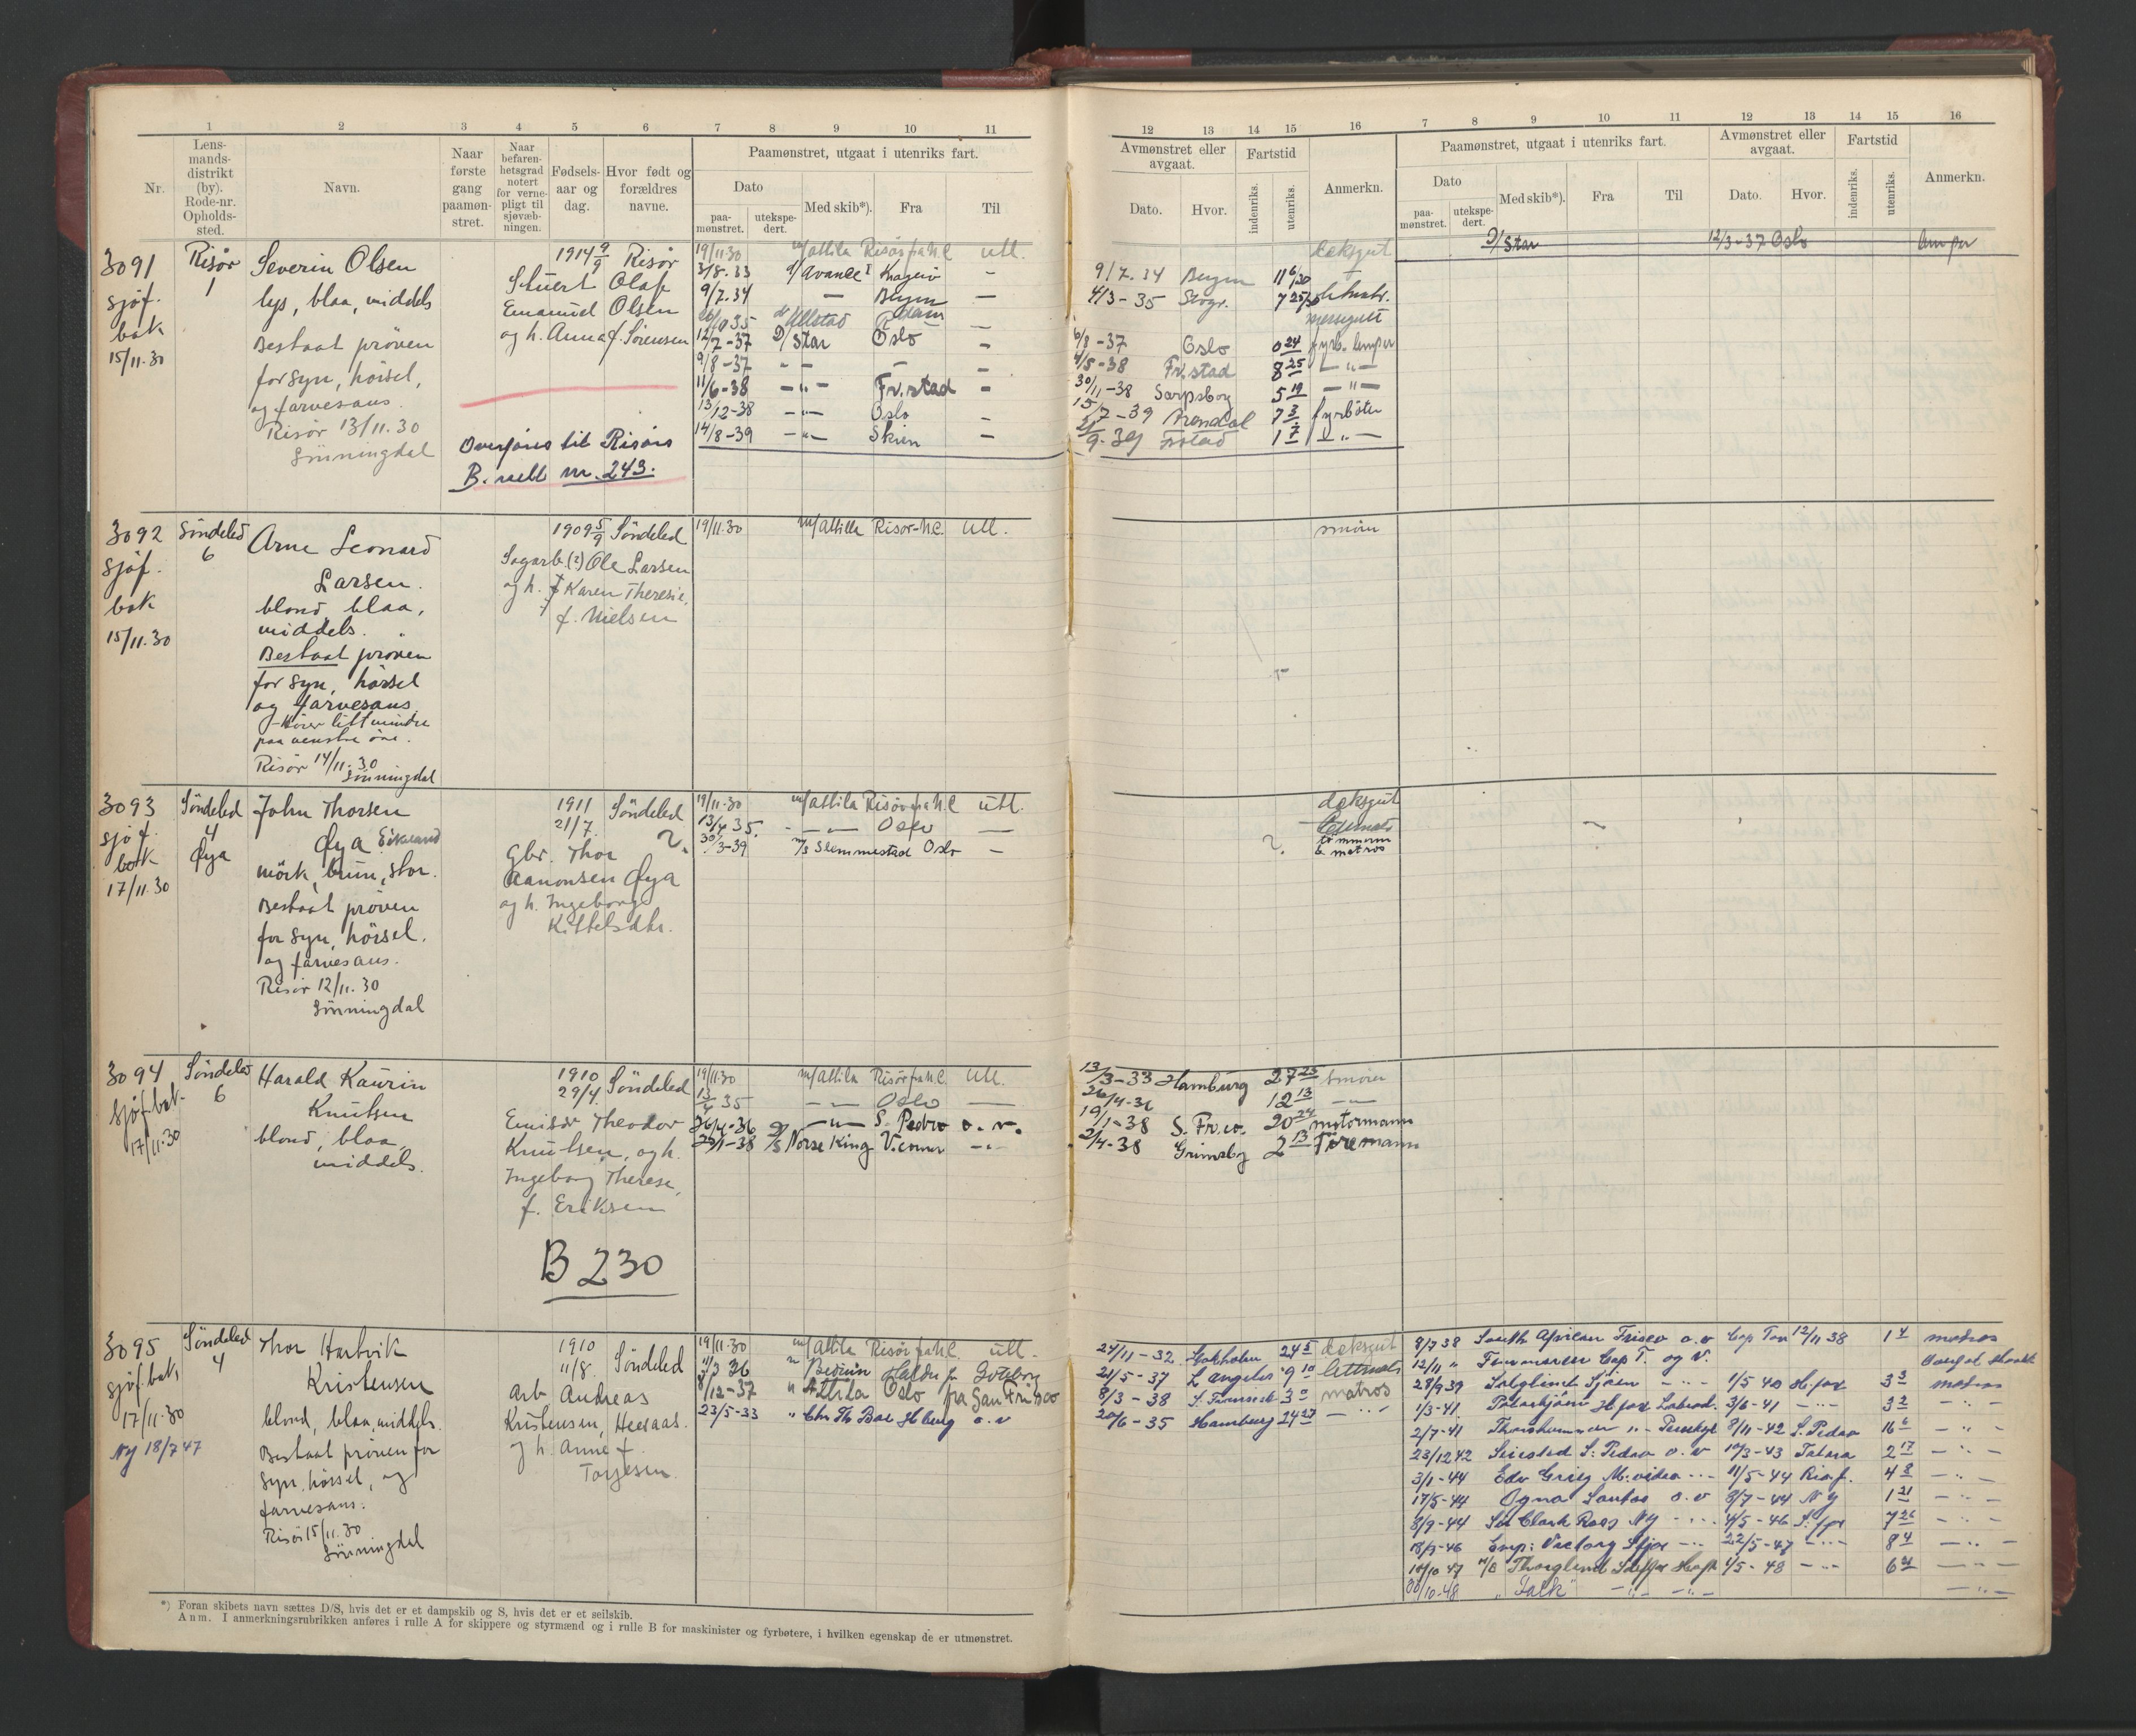 1 2 3 4 5 6 7 8 9 10 11
Nr.
Lens-
mands-
distrikt
(by).
Rode-nr.
Opholds-
sted.
Navn.
Naar
første
gang
paamøn-
stret.
Naar
befaren-
hetsgrad
notert
for verne-
pligt til
sjøvæb-
ningen.
Fødsels-
aar og
dag.
Hvor født og
forældres
navne.
Paamønstret, utgaat i utenriks fart.
Dato
paa-
mønstret.
utekspe-
dert.
Med skib*).
Fra
Til
12 13 14 15 16 7 8 9 10 11 12 13 14 15 16
Avmønstret eller
avgaat.
Dato.
Hvor.
Fartstid
indenriks.
utenriks.
Anmerkn.
Paamønstret, utgaat i utenriks fart.
Dato
paa-
mønstret.
utekspe-
dert.
Med skib*).
Fra
Til
Avmønstret eller
avgaat.
Dato.
Hvor.
Fartstid
indenriks.
utenriks.
Anmerkn.
3091
sjøf.
bok
15/11.30
Risør
1
Severin Olsen
lys, blaa, middels
Bestaat prøven
for syn, hørsel,
og farvesans.
Risør 13/11.30
Sünningdal
1914 9/9 Risør
Stuert Olaf
Emanuel Olsen
og h. Anna f. Sørensen
Overføres til Risørs
B. rulle nr. 243.
19/11.30 m/Attila Risør utl.
3/8-33 Kragerø –
9/7.34 — Bergen —
12/7-37 D/ Star Oslo –
9/8-37 – – – –
11/6-38 –"– Fr.stad –
13/12-38 –"– Oslo –
14/8-39 –"– Skien –
dæksgut
9/7.34 Bergen 11 6/30
4/3-35
6/8-37 Oslo 0 24 fyrb. lemper
4/5-38 Fr.stad 8 25 –"–
30/11-38 Sarpsborg 5 19 –"–
15/7-39 Arendal 7 3 fyrbøter
9.39 Frstad 1 7 –"–
D/ Star 12/3-37 Oslo
3092
sjøf.
bok
15/11.30
Søndeled
6
Arne Leonard
Larsen.
blond blaa,
middels.
Bestaat prøven
for syn, hørsel
og farvesans
Hører litt mindre
paa venstre øre.
Risør 14/11.30
Sünningdal
1909 5/9 Søndeled
Sagarb. (?) Ole Larsen
og h. Karen Theresie,
f. Nielsen
19/11.30 m/Attila Risør-N.C. utl.
smører
3093
sjøf.
bok
17/11.30
Søndeled
4
Øya
John Thorsen
Øya Eikeland
mørk, brun, stor.
Bestaat prøven
for syn, hørsel.
og farvesans.
Risør 12/11.30
Sünningdal
1911
21/7. Søndeled
Gbr. Thor
Aanonsen Øya
og h. Ingeborg
Kittelsdtr.
19/11.30 m/Attila Risør utl.
13/4 35. –"– Oslo —
30/3-39 m/s Slemmestad Oslo –
dæksgut
tømmerm
& matros
3094
sjøf.bok
17/11.30
Søndeled
6
Harald Kaurin
Knutsen
blond, blaa,
middels.
1910
29/4. Søndeled
Emissær Theodor
Knutsen, og h.
Ingeborg Therese,
f. Eriksen
B 230
19/11.30 m/Attila Risør utl.
13/4 35 –"– Oslo —
26/4-36 –"– S. Pedro o. v.
Norse King –"–
13/3-33 Hamburg 27 23 smører
26/4-36 12 13 –"–
19/1-38 S. Fr.co. 20 24 motormann
2/4-38 Grimsby 2 13
3095
sjøf.bok,
17/11.30
Ny 18/7 47
Søndeled
4
Thor Hartvik
Kristensen
blond, blaa, middels.
Bestaat prøven for
syn, hørsel, og
farvesans.
Risør 15/11.30
Sünningdal
1910
11/8. Søndeled
Arb. Andreas
Kristensen, Heeaas.
og h. Anne f.
Torjesen.
19/11.30 m/Attila Risør utl.
11/3 36 " Beduin Halden Gøteborg
8/12-37 " Attila Oslo fra San Frisco
23/5-33 " Chr. Th. Boe Hburg o. v
24/11-32 Stokholm 24 5 dæksgut
21/5-37 L. angelos 9 10 lettmatr
8/3-38 3 0 matros
20/6-35 Hamburg 24 27 –"–
9/7 38 South African Frisco o. v Cap Town 12/11 38 1 4 matros
12/11 " Fernmoor Cap T. og v.
28/9 39 Solglimt Sfjden –"– 1/5 40 H.fax 3 3 matros
1/3-41. Polarbjørn H.fax Labrad. 3/6-41 –"– 3 2 –"–
2/7-41 Thorshammer "– 8/11-42 S. Pedro 16 6 –"–
23/12 42 Seirstad S. Pedro o. v 10/3-43 Talara 2 17 –"–
3/1-44 Edv Grieg M.video –"– 11/5-44 4 8 –"–
17/5-44 Ogna Santos o. v 8/7-44 NY 1 21 –"–
8/9-44 Sir Clark Ross NY –"– 4/5-46 7 26 –"–
18/9-46 Emp: Victory Sfjor –"– 22/5-47 –"– 8 4 –"–
10/10 47 m/s Thorglimt 1/5-48 –"– 6 21 –"–
30/10-48 " "Falk" –"– –"– –"–
*) Foran skibets navn sættes D/S, hvis det er et dampskib og S, hvis det er et seilskib.
Anm. I anmerkningsrubrikken anføres i rulle A for skippere og styrmænd og i rulle B for maskinister og fyrbøtere, i hvilken egenskap de er utmønstret.